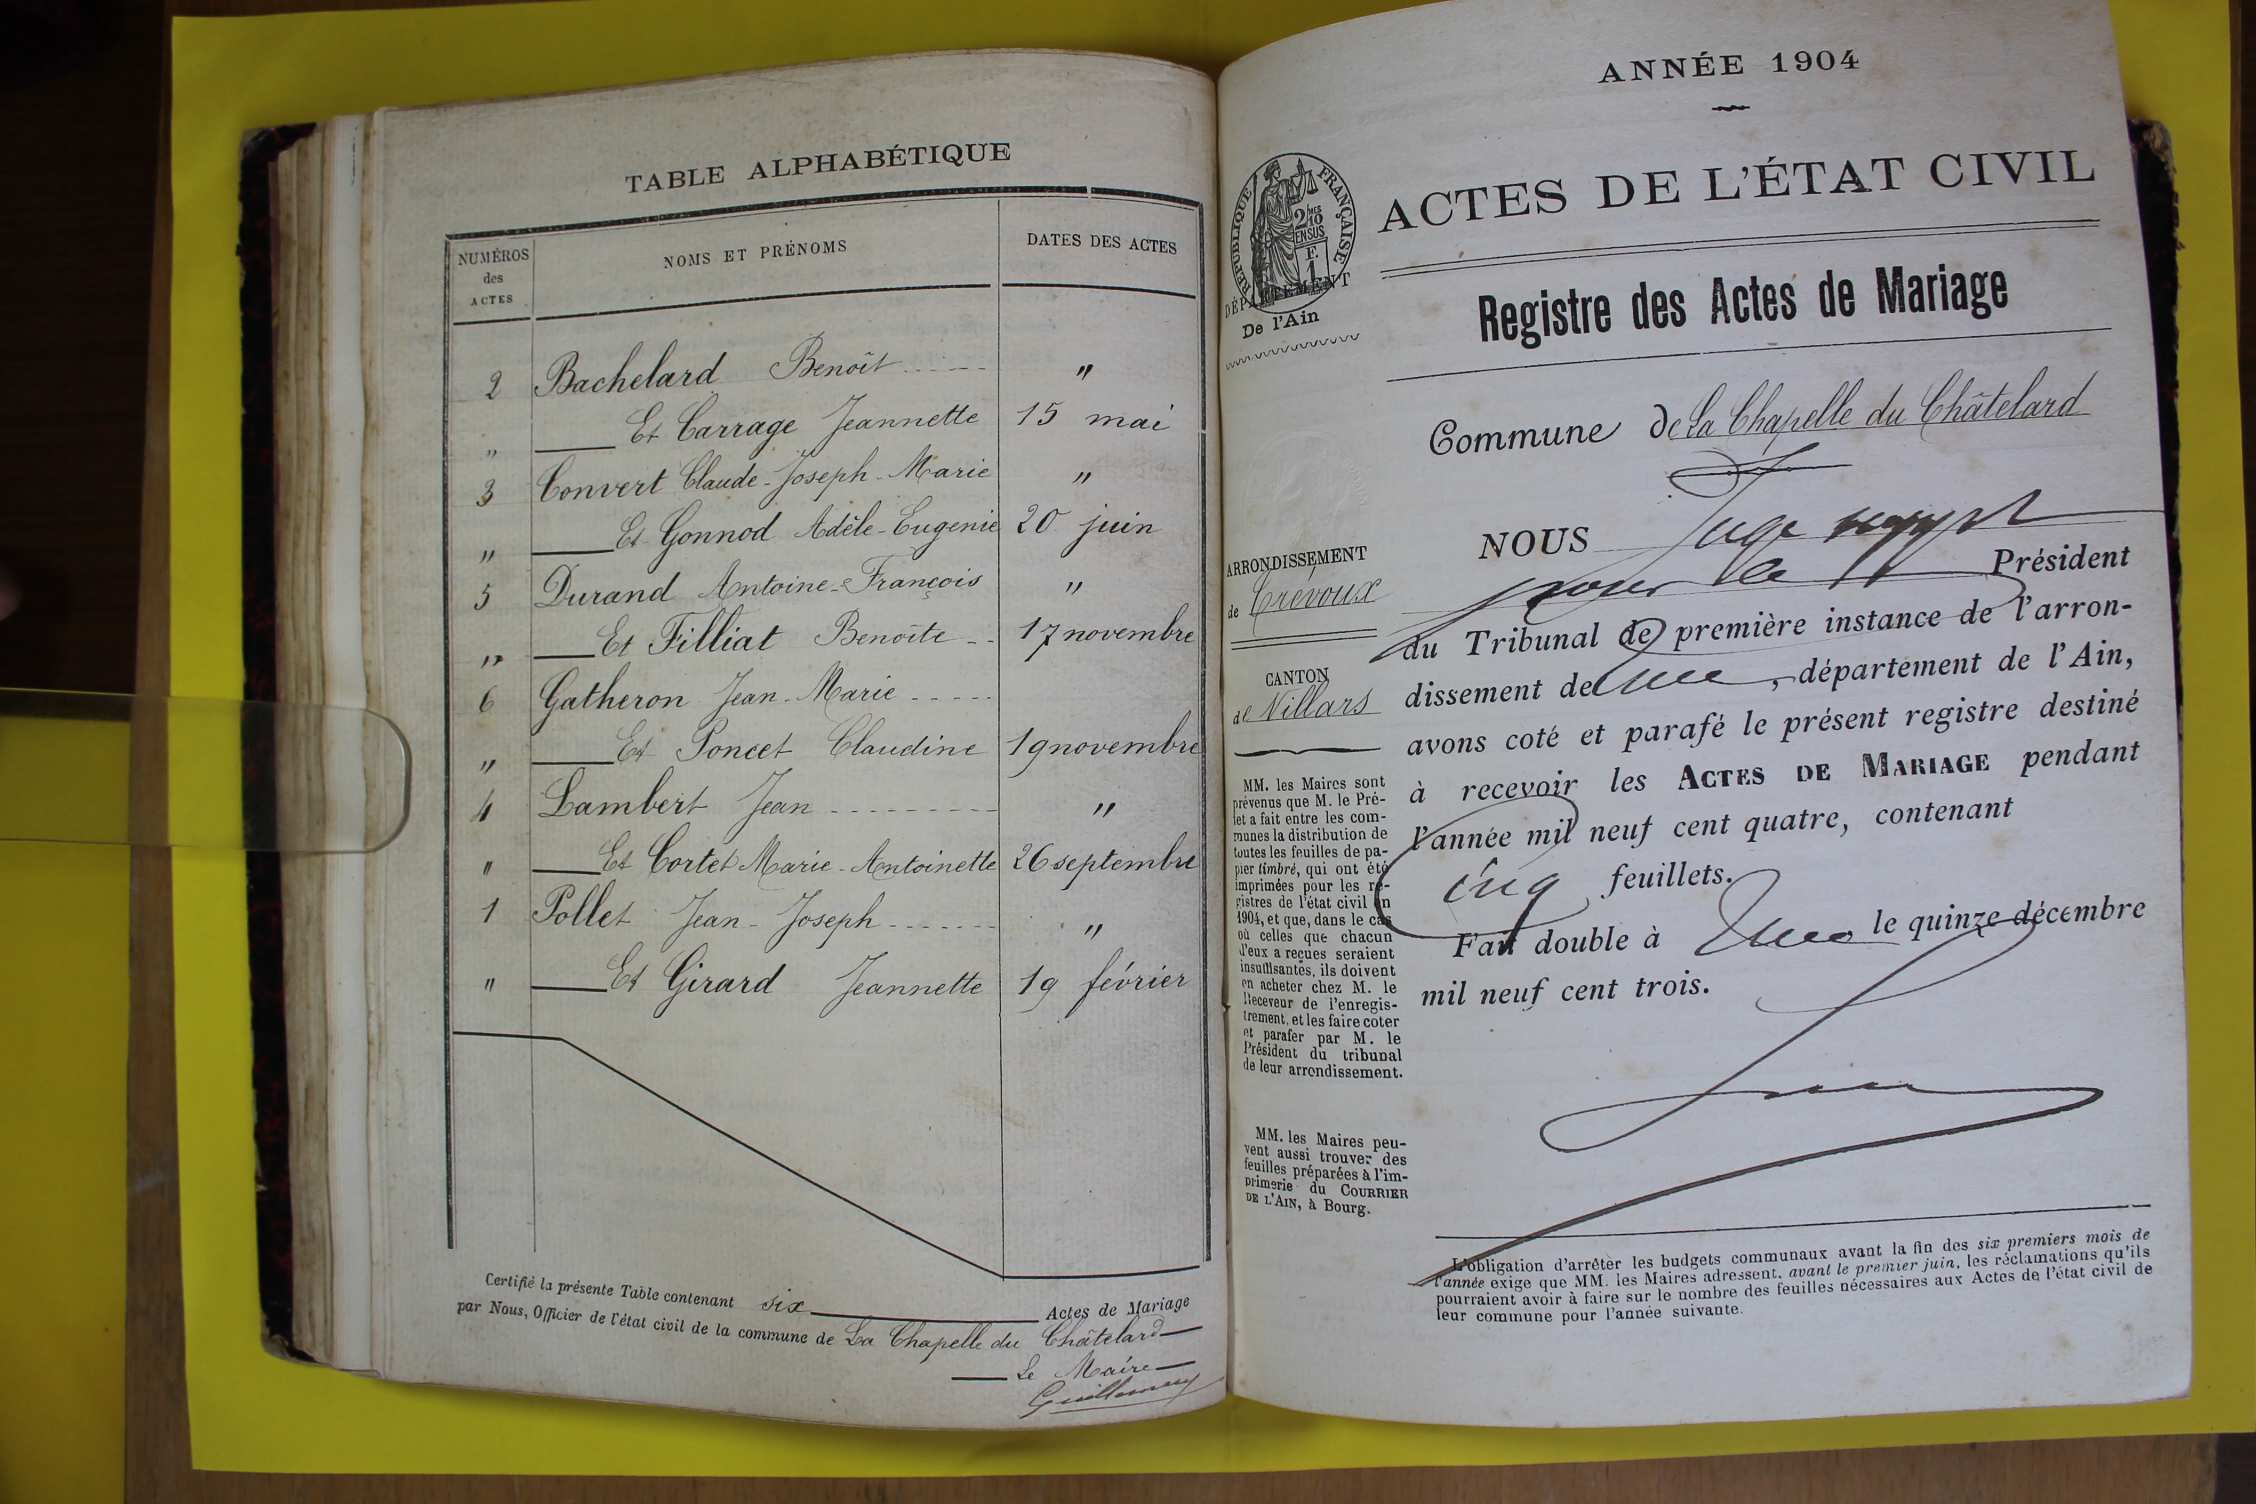 TABLE ALPHABÉTIQUE
NUMÉROS des ACTES
NOMS ET PRÉNOMS
DATES DES ACTES
2 Bachelard Benoît "
" Et Carrage Jeannette 15 mai
3 Convert Claude-Joseph-Marie "
" Et Gonnod Adèle-Eugenie 20 juin
5 Durand Antoine-François "
" Et Filliat Benoîte 17 novembre
6 Gatheron Jean-Marie
" Et Poncet Claudine 19 novembre
4 Lambert Jean "
" Et Cortet Marie-Antoinette 26 septembre
1 Pollet Jean-Joseph "
" Et Girard Jeannette 19 février
Certifié la présente Table contenant six Actes de Mariage
par Nous, Officier de l'état civil de la commune de La Chapelle du Châtelard
Le Maire
ANNÉE 1904
ACTES DE L'ÉTAT CIVIL
RÉPUBLIQUE FRANÇAISE
2 MES 10
EN SUS
E.
1
DÉPARTEMENT
De l'Ain
Registre des Actes de Mariage
Commune de La Chapelle du Châtelard
ARRONDISSEMENT
de Trévoux
CANTON
de Villars
MM. les Maires sont
prévenus que M. le Pré-
fet a fait entre les com-
munes la distribution de
toutes les feuilles de pa-
pier timbré, qui ont été
imprimées pour les re-
gistres de l'état civil en
1904, et que, dans le cas
où celles que chacun
d'eux a reçues seraient
insuffisantes, ils doivent
en acheter chez M. le
Receveur de l'enregis-
trement, et les faire coter
et parafer par M. le
Président du tribunal
de leur arrondissement.
MM. les Maires peu-
vent aussi trouver des
feuilles préparées à l'im-
primerie du COURRIER
DE L'AIN, à Bourg.
NOUS Juge
pour le Président
du Tribunal de première instance de l'arron-
dissement de , département de l'Ain,
avons coté et parafé le présent registre destiné
à recevoir les ACTES DE MARIAGE pendant
l'année mil neuf cent quatre, contenant
cinq feuillets.
Fait double à le quinze décembre
mil neuf cent trois.
L'obligation d'arrêter les budgets communaux avant la fin des six premiers mois de
l'année exige que MM. les Maires adressent, avant le premier juin, les réclamations qu'ils
pourraient avoir à faire sur le nombre des feuilles nécessaires aux Actes de l'état civil de
leur commune pour l'année suivante.